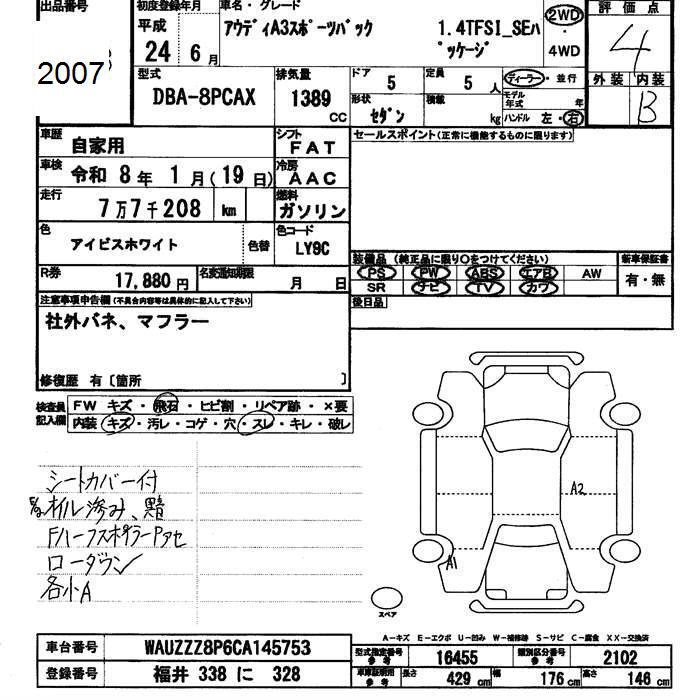 出品番号
2007
初度登録年月
平成
24 6 月
車名・グレード
アウディA3スポーツバック 1.4TFSI_SEパ
ッケージ
2WD
・
4WD
評価点
4
外装 内装
B
型式
DBA-8PCAX
排気量
1389
CC
ドア
5
定員
5 人
ディーラー・並行
形状
セダン
積載
kg
モデル年式 年
ハンドル 左・右
車歴
自家用
シフト
FAT
車検
令和 8 年 1 月(19 日)
冷房
AAC
走行
7万7千208 km
燃料
ガソリン
色
アイビスホワイト
色替
色コード
LY9C
R券
17,880 円
名変通知期限
月 日
セールスポイント(正常に機能するものに限ります)
装備品 (純正品に限り○をつけてください)
PS PW ABS エアB AW
SR ナビ TV カワ
新車保証書
有・無
後日品
注意事項申告欄(不具合内容等は具体的に記入して下さい)
社外バネ、マフラー
修復歴 有〔箇所 〕
検査員
記入欄
FW キズ・飛石・ヒビ割・リペア跡・×要
内装・キズ・汚レ・コゲ・穴・スレ・キレ・破レ
シートカバー付
オイル滲み、
Fハーフスポイラー
ローダウン
各小A
A2
A1
スペア
A-キズ E-エクボ U-凹み W-補修跡 S-サビ C-腐食 XX-交換済
車台番号
WAUZZZ8P6CA145753
登録番号
福井 338 に 328
型式指定番号
参考
16455
類別区分番号
参考
2102
車庫証明用
参考
長さ
429 cm
幅
176 cm
高さ
146 cm